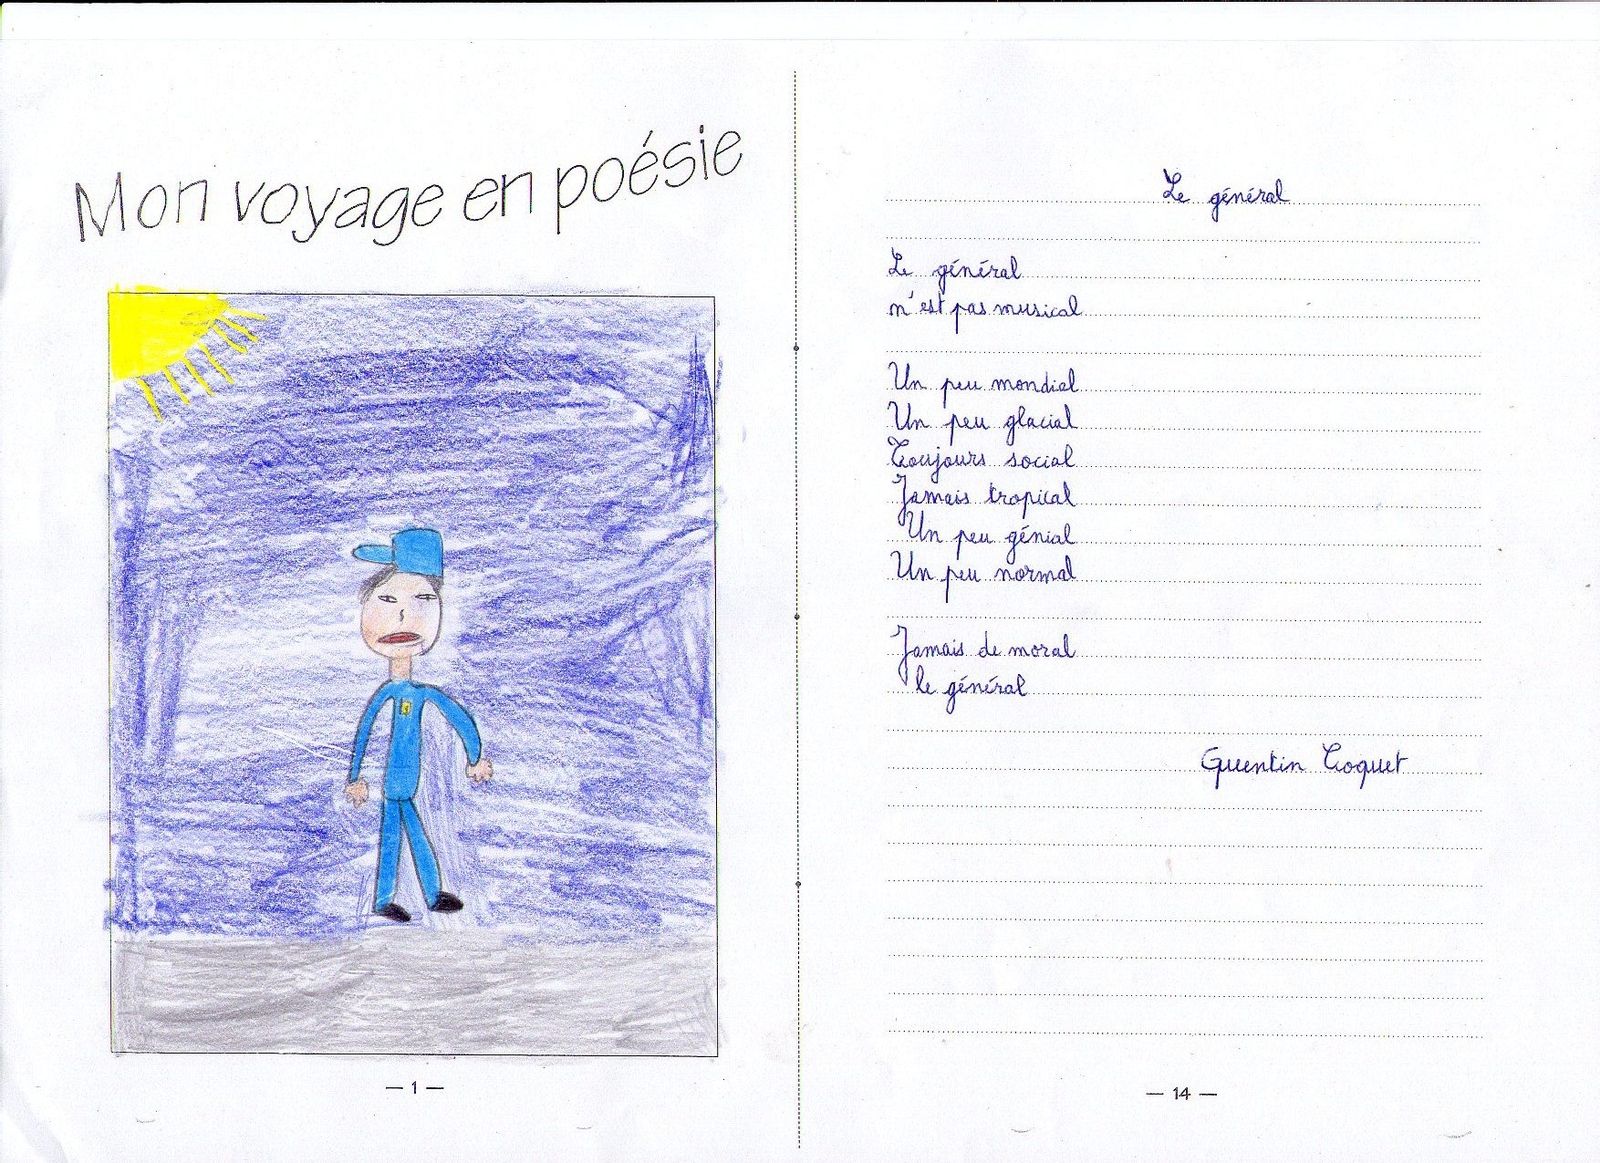 Mon voyage en poésie
— 1 —
Le général
Le général
n'est pas musical
Un peu mondial
Un peu glacial
Toujours social
Jamais tropical
Un peu génial
Un peu normal
Jamais de moral
le général
Quentin Coquet
— 14 —